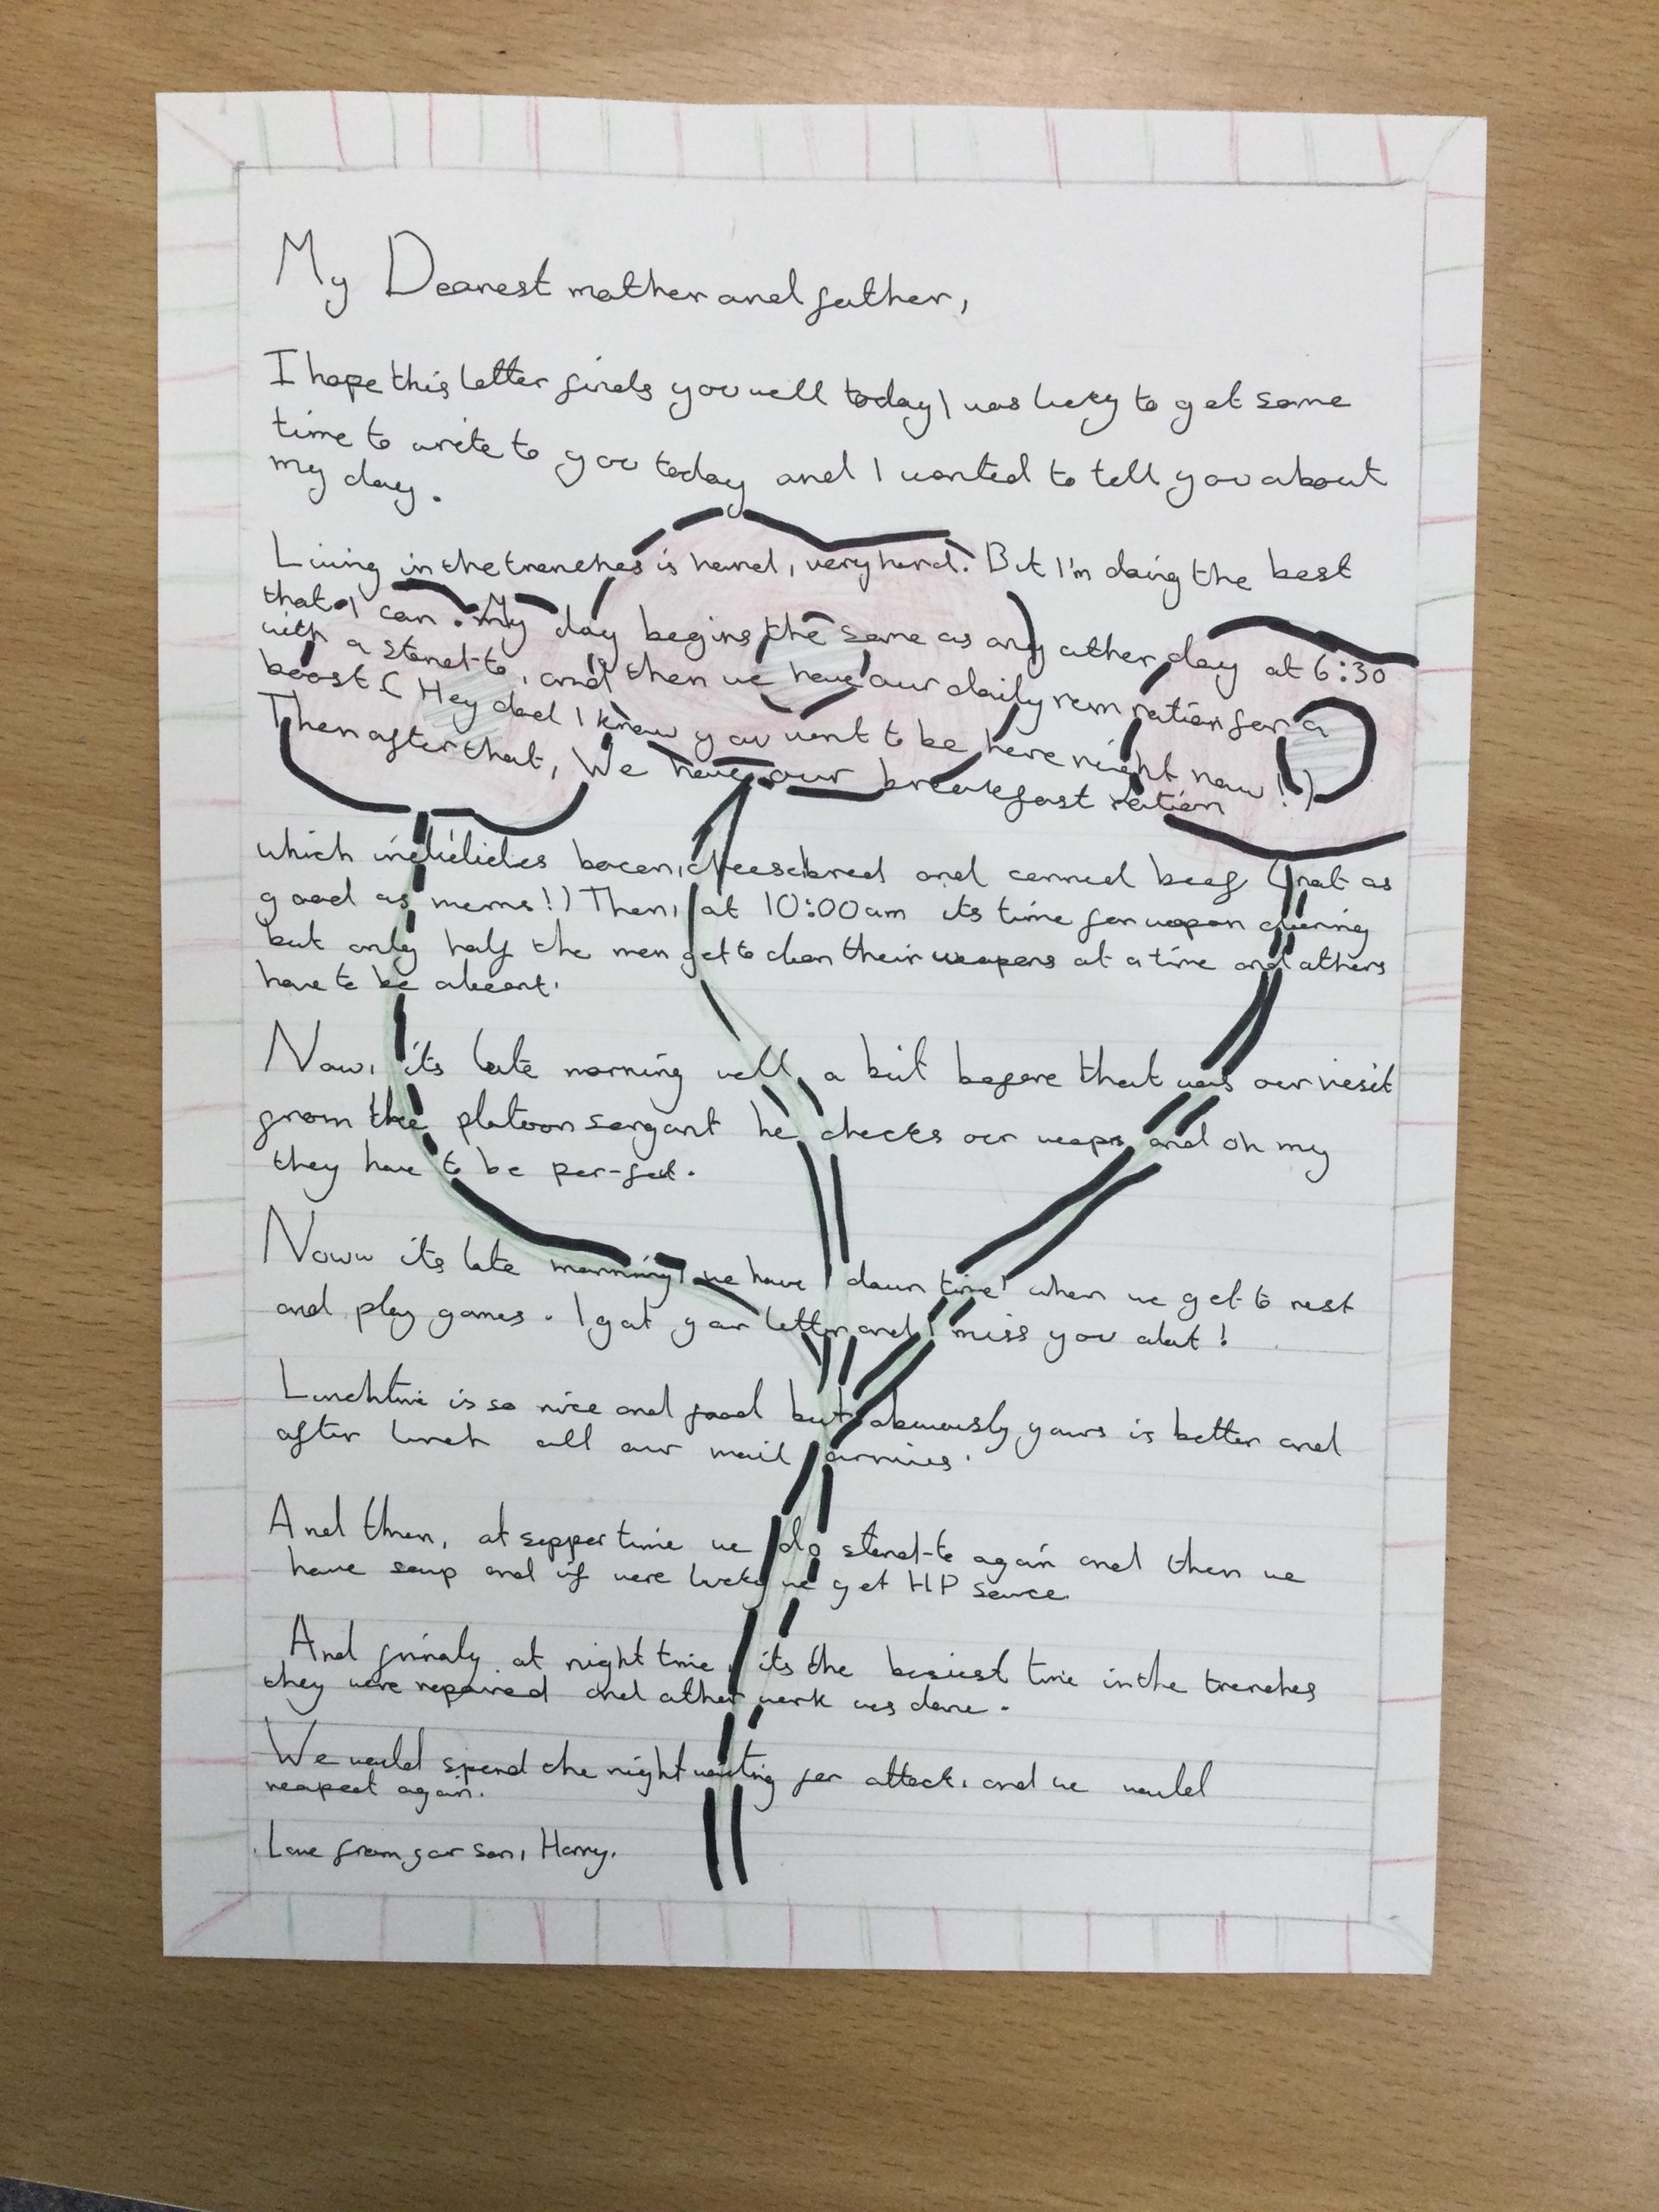 My Dearest mother and father,
I hope this letter finds you well today I was lucky to get some
time to write to you today and I wanted to tell you about
my day.
Living in the trenches is hared, very hard. But I'm doing the best
that I can. My day begins the same as any other day at 6:30
with a stand-to, and then we have our daily rum ration for a
boost (Hey dad I know you want to be here right now!)
Then after that, We have our breakfast ration
which bacon, cheese, bread and canned beef (not as
good as mems!) Then, at 10:00am its time for wepon
but only half the men get to clean their weapens at a time and others
have to be
Now, its late morning well, a bit before that was our visit
from the platoon sergant he checks our and oh my
they have to be per-fect.
Noww its late morning, we have 'down time' when we get to rest
and play games. I got your letter and I miss you alot!
Lunchtime is so nice and good but yours is better and
after lunch all our mail arrives.
And then, at supper time we do stand-to again and then we
have soup and if were lucky we get HP sauce.
And finaly at night time, its the busiest time in the trenches
they were repaired and other work was done.
We would spend the night waiting for attack, and we would
reapeet again.
Love from your son, Harry.